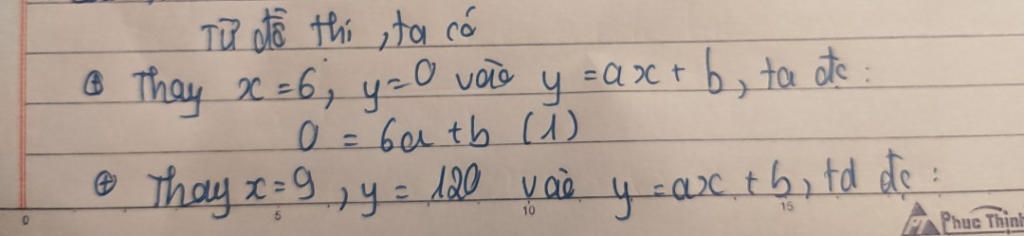 Từ đồ thi, ta có
⊕ Thay x = 6, y = 0 vào y = ax + b, ta đc :
0 = 6a + b (1)
⊕ Thay x = 9, y = 120 vào y = ax + b, ta đc :
0 5 10 15
PT Phuc Thinh